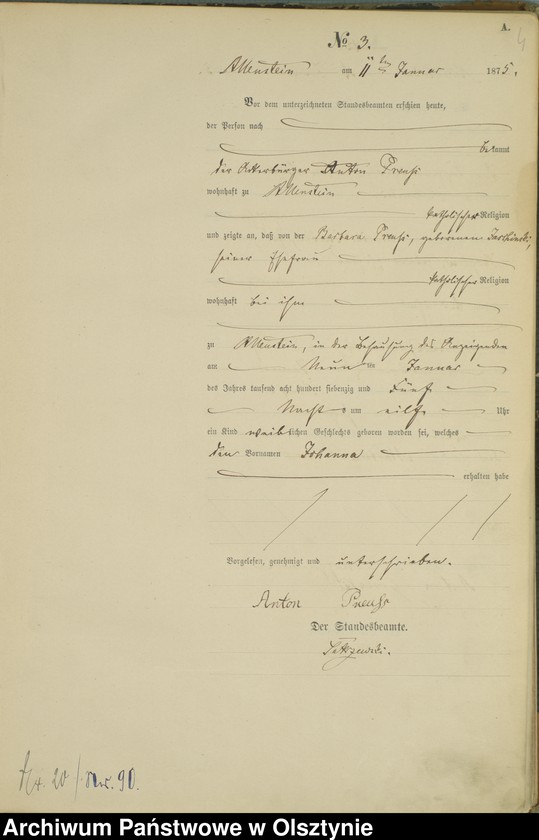 A.
4
№ 3.
Allenstein am 11ten Januar 1875.
Vor dem unterzeichneten Standesbeamten erschien heute,
der Person nach
bekannt
der Ackerbürger Anton Preuß
wohnhaft zu Allenstein
katholischer Religion
und zeigte an, daß von der Barbara Preuß, geborenen
seiner Ehefrau
katholischer Religion
wohnhaft bei ihm
zu Allenstein, in der Behausung des Anzeigenden
am Neunten Januar
des Jahres tausend acht hundert siebenzig und Fünf
Nachts um eilf Uhr
ein Kind weiblichen Geschlechts geboren worden sei, welches
den Vornamen Johanna
erhalten habe
Vorgelesen, genehmigt und unterschrieben.
Anton Preuß
Der Standesbeamte.
20 / 90.
Archiwum Państwowe w Olsztynie